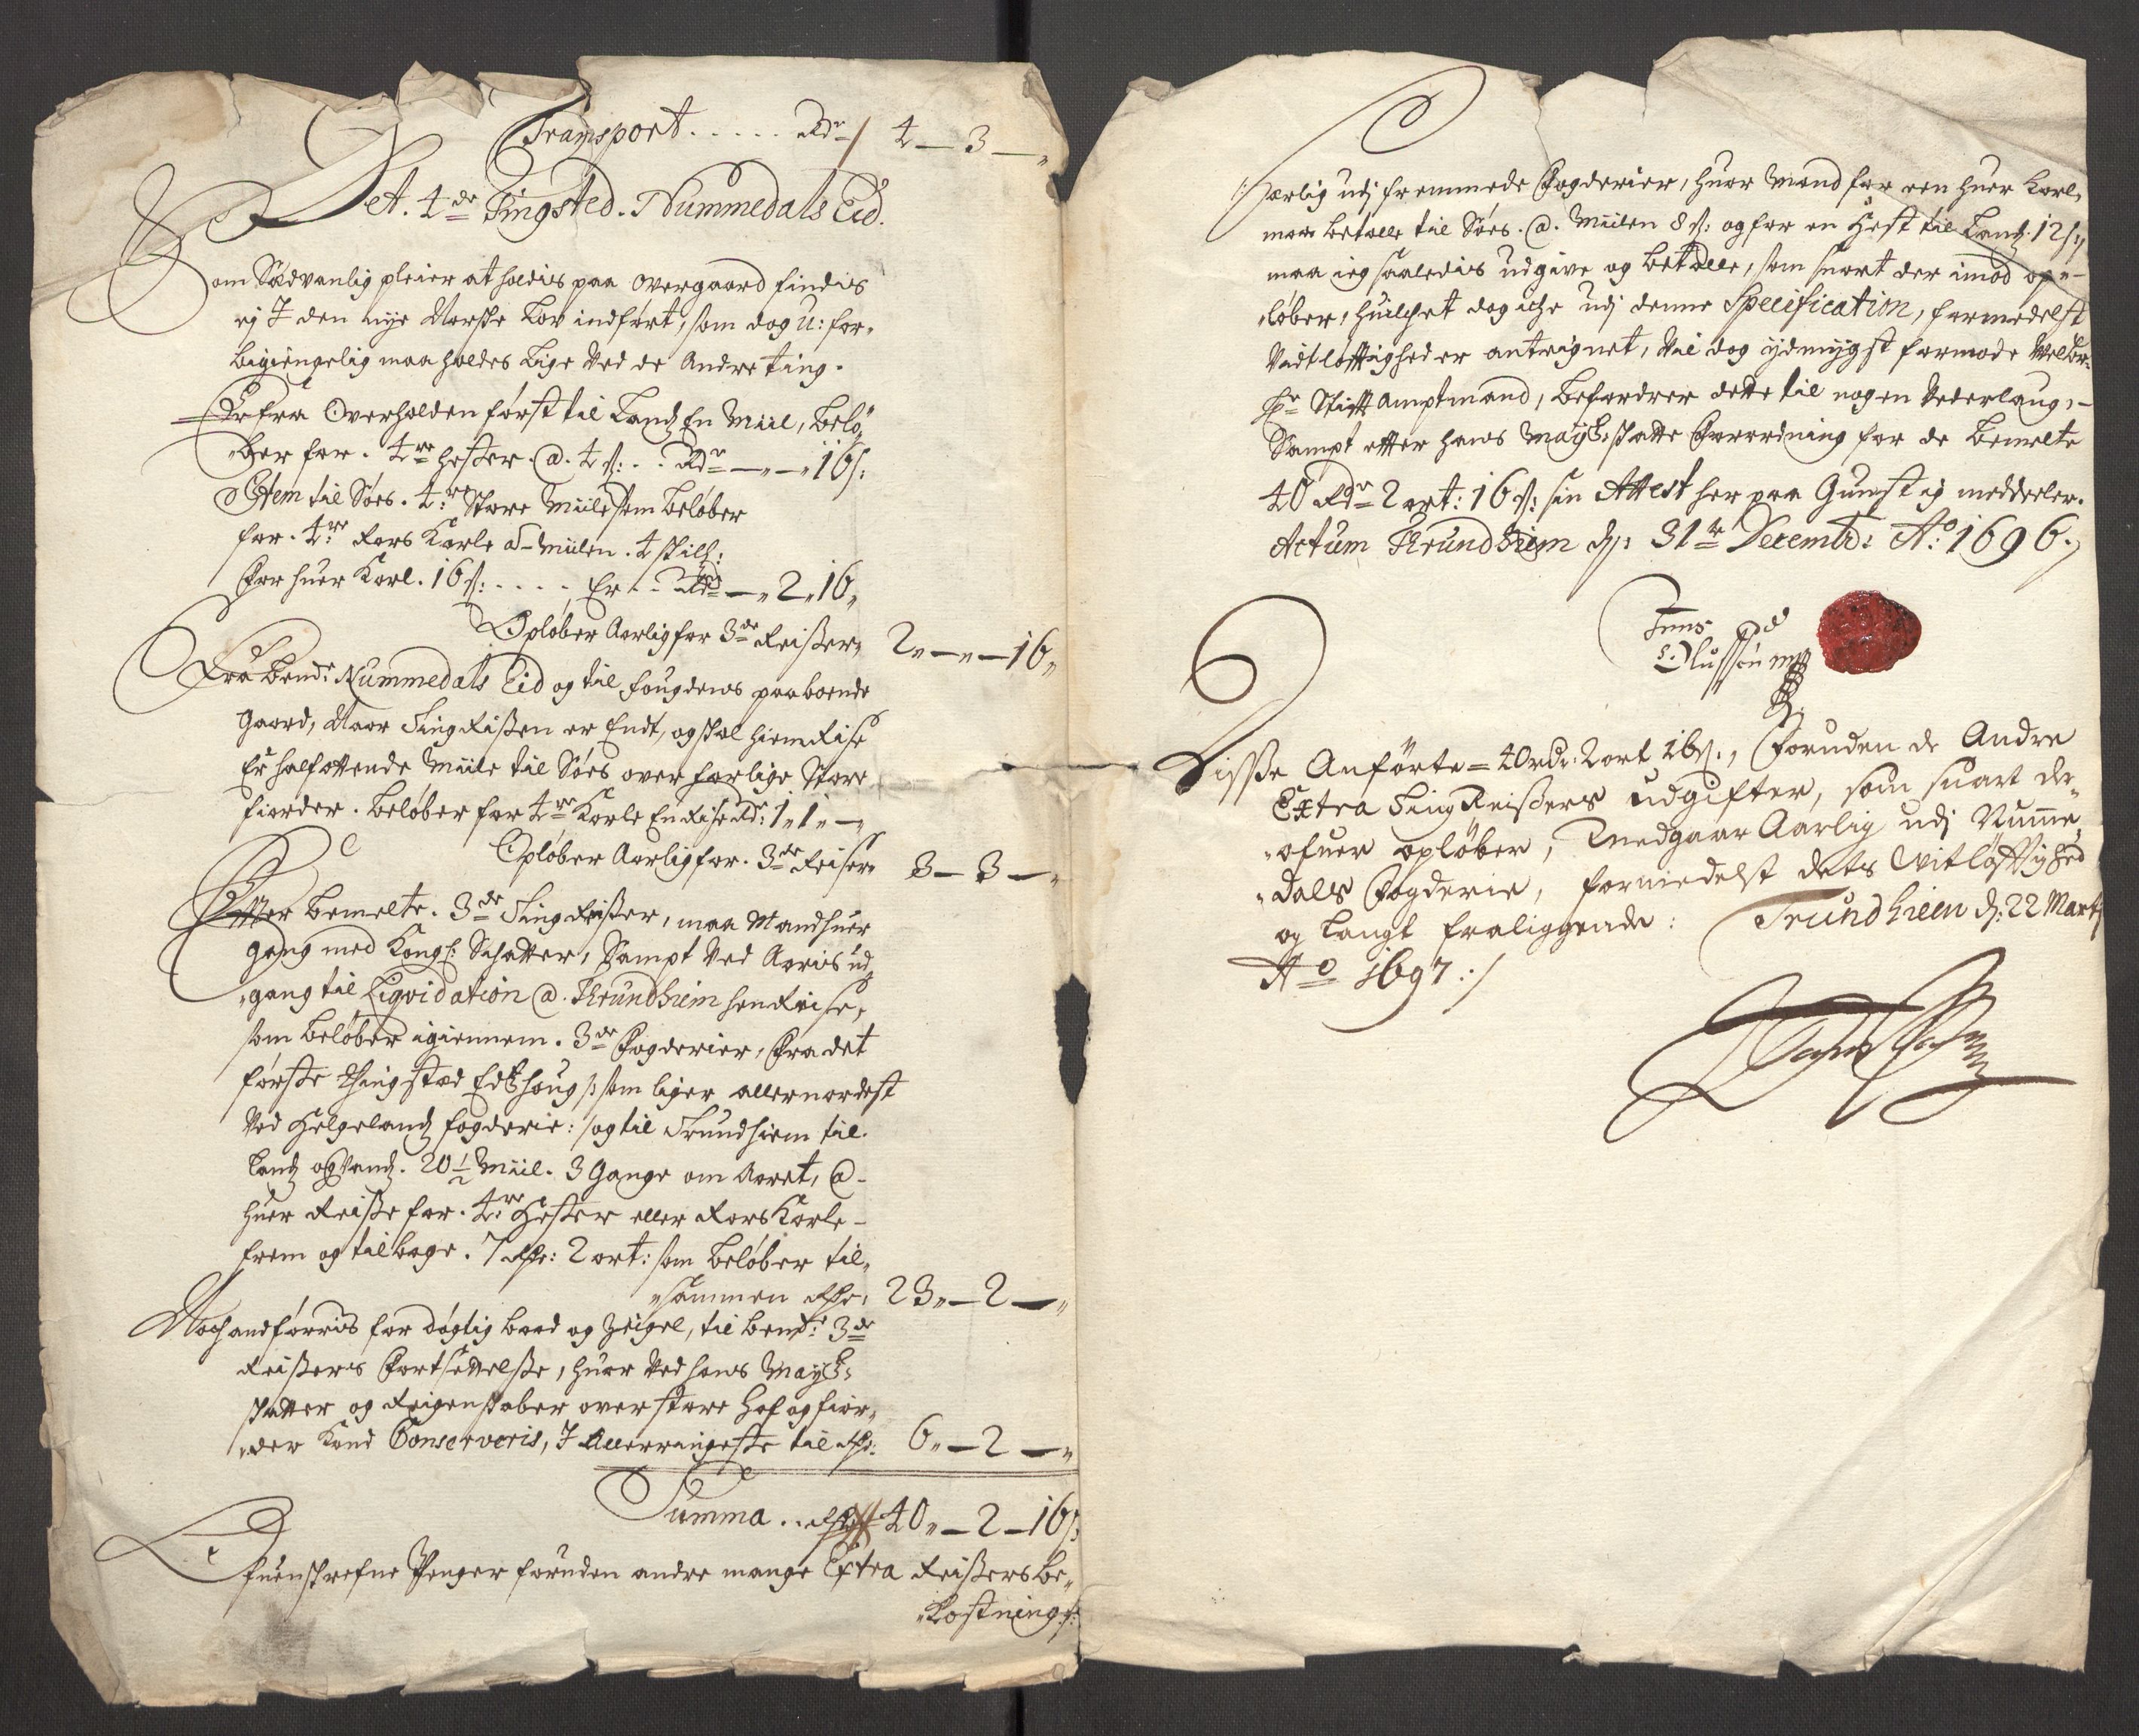 Transport . . . . . Rdr 4 — 3 — „
Det. 4de Tingsted. Nummedals Eid.
Som Sædvanlig pleier at holdis paa Overgaard findis
ej J den nye Norske Lov indført, som dog U: for„
bigiengelig maa holdes lige ved de Andre ting.
Er fra Overholden først til Landz En Miil, belø„
ber for. 4re Hester. @. 4 s: . . Rdr — „ — „ 16 s:
Item til Søes. 4re Store Miile som beløber
for. 4re Rors Karle a Miilen. 4 skill:
For huer Karl. 16 s: . . . . Er . . Rdr — „ 2 „ 16 „
Opløber Aarlig for 3de Reisser „ 2 „ — „ — 16 „
Fra bemte Nummedals Eid og til fougdens paaboende
Gaard, Naar Ting Reissen er Endt, og skal hiem Reise
Er halfottende Miile til Søes over farlige Store
fiorder. beløber for 4re Karle En Reise Rdr: 1 „ 1 „ — „
Opløber Aarlig for. 3de Reiser „ 3 — 3 — „
Efter bemelte. 3de Ting Reisser, maa Mand huer
gang med Kongl: Schatter, Sampt ved Aaris ud„
„gang til Liqvidation @. Thrundhiem hen Reise,
som beløber igiennem. 3de Fogderier, Fra det
første Thing stæd Edtzhoug /: som liger allernordest
ved Helgelandz fogderie: / og til Trundhiem til
Landz og Vandz. 20 1/2 Miil. 3 Gange om Aaret, @
huer Reisse for. 4re Hester eller Rors Karle
frem og tilbage. 7 Rdr: 2 ort: som beløber til„
„sammen Rdr: 23 „ — 2 — „
Noch andførris for døgtig baad og Zeigel, til bemte 3de
Reissers Fortsettelsse, huor ved hans Mayts:
skatter og Reigenskaber over store Haf og fior„
„der Kand Conserveris, J Allerringeste til Rdr: 6 „ — 2 — „
Summa . . Rdr 40 „ — 2 — 16 s:
Fuenskrefne Penger foruden andre mange Extra Reissers be„
„kostning /:
/: særlig udj fremmede Fogderier, huor Mand for een huer Karl,
maa betalle til Søes. @. Miilen 8 s: og for en Hest til Landz 12 s: /
maa ieg saaledis udgive og betalle, som snart der imod op„
„løber, huilchet dog iche udj denne Specification, formedelst
Vidtløfftighed er anteignet, Vil dog ydmygst formode Welbr:
Hr Stifft Amptmand, befordrer dette til nogen Vederlaug, —
Sampt etter hans Mayts: skatte Forordning for de bemelte
40 Rdr 2 ort: 16 s: sin Attest her paa Gunstig meddeeler.
Actum Thrundhiem dn: 31te Decembr: Ao: 1696.
Olussen mp
Disse Anförte = 40 rdr: 2 ort 16 s:, Foruden de Andre
Extra Ting Reissers udgifter, som snart der„
„ofuer opløber, Medgaar Aarlig udj Numme„
„dals Fogderie, formedelst dets Vitløfftighed
og langt fraliggende: Trundhieem d: 22 Martj
Ao 1697 :/